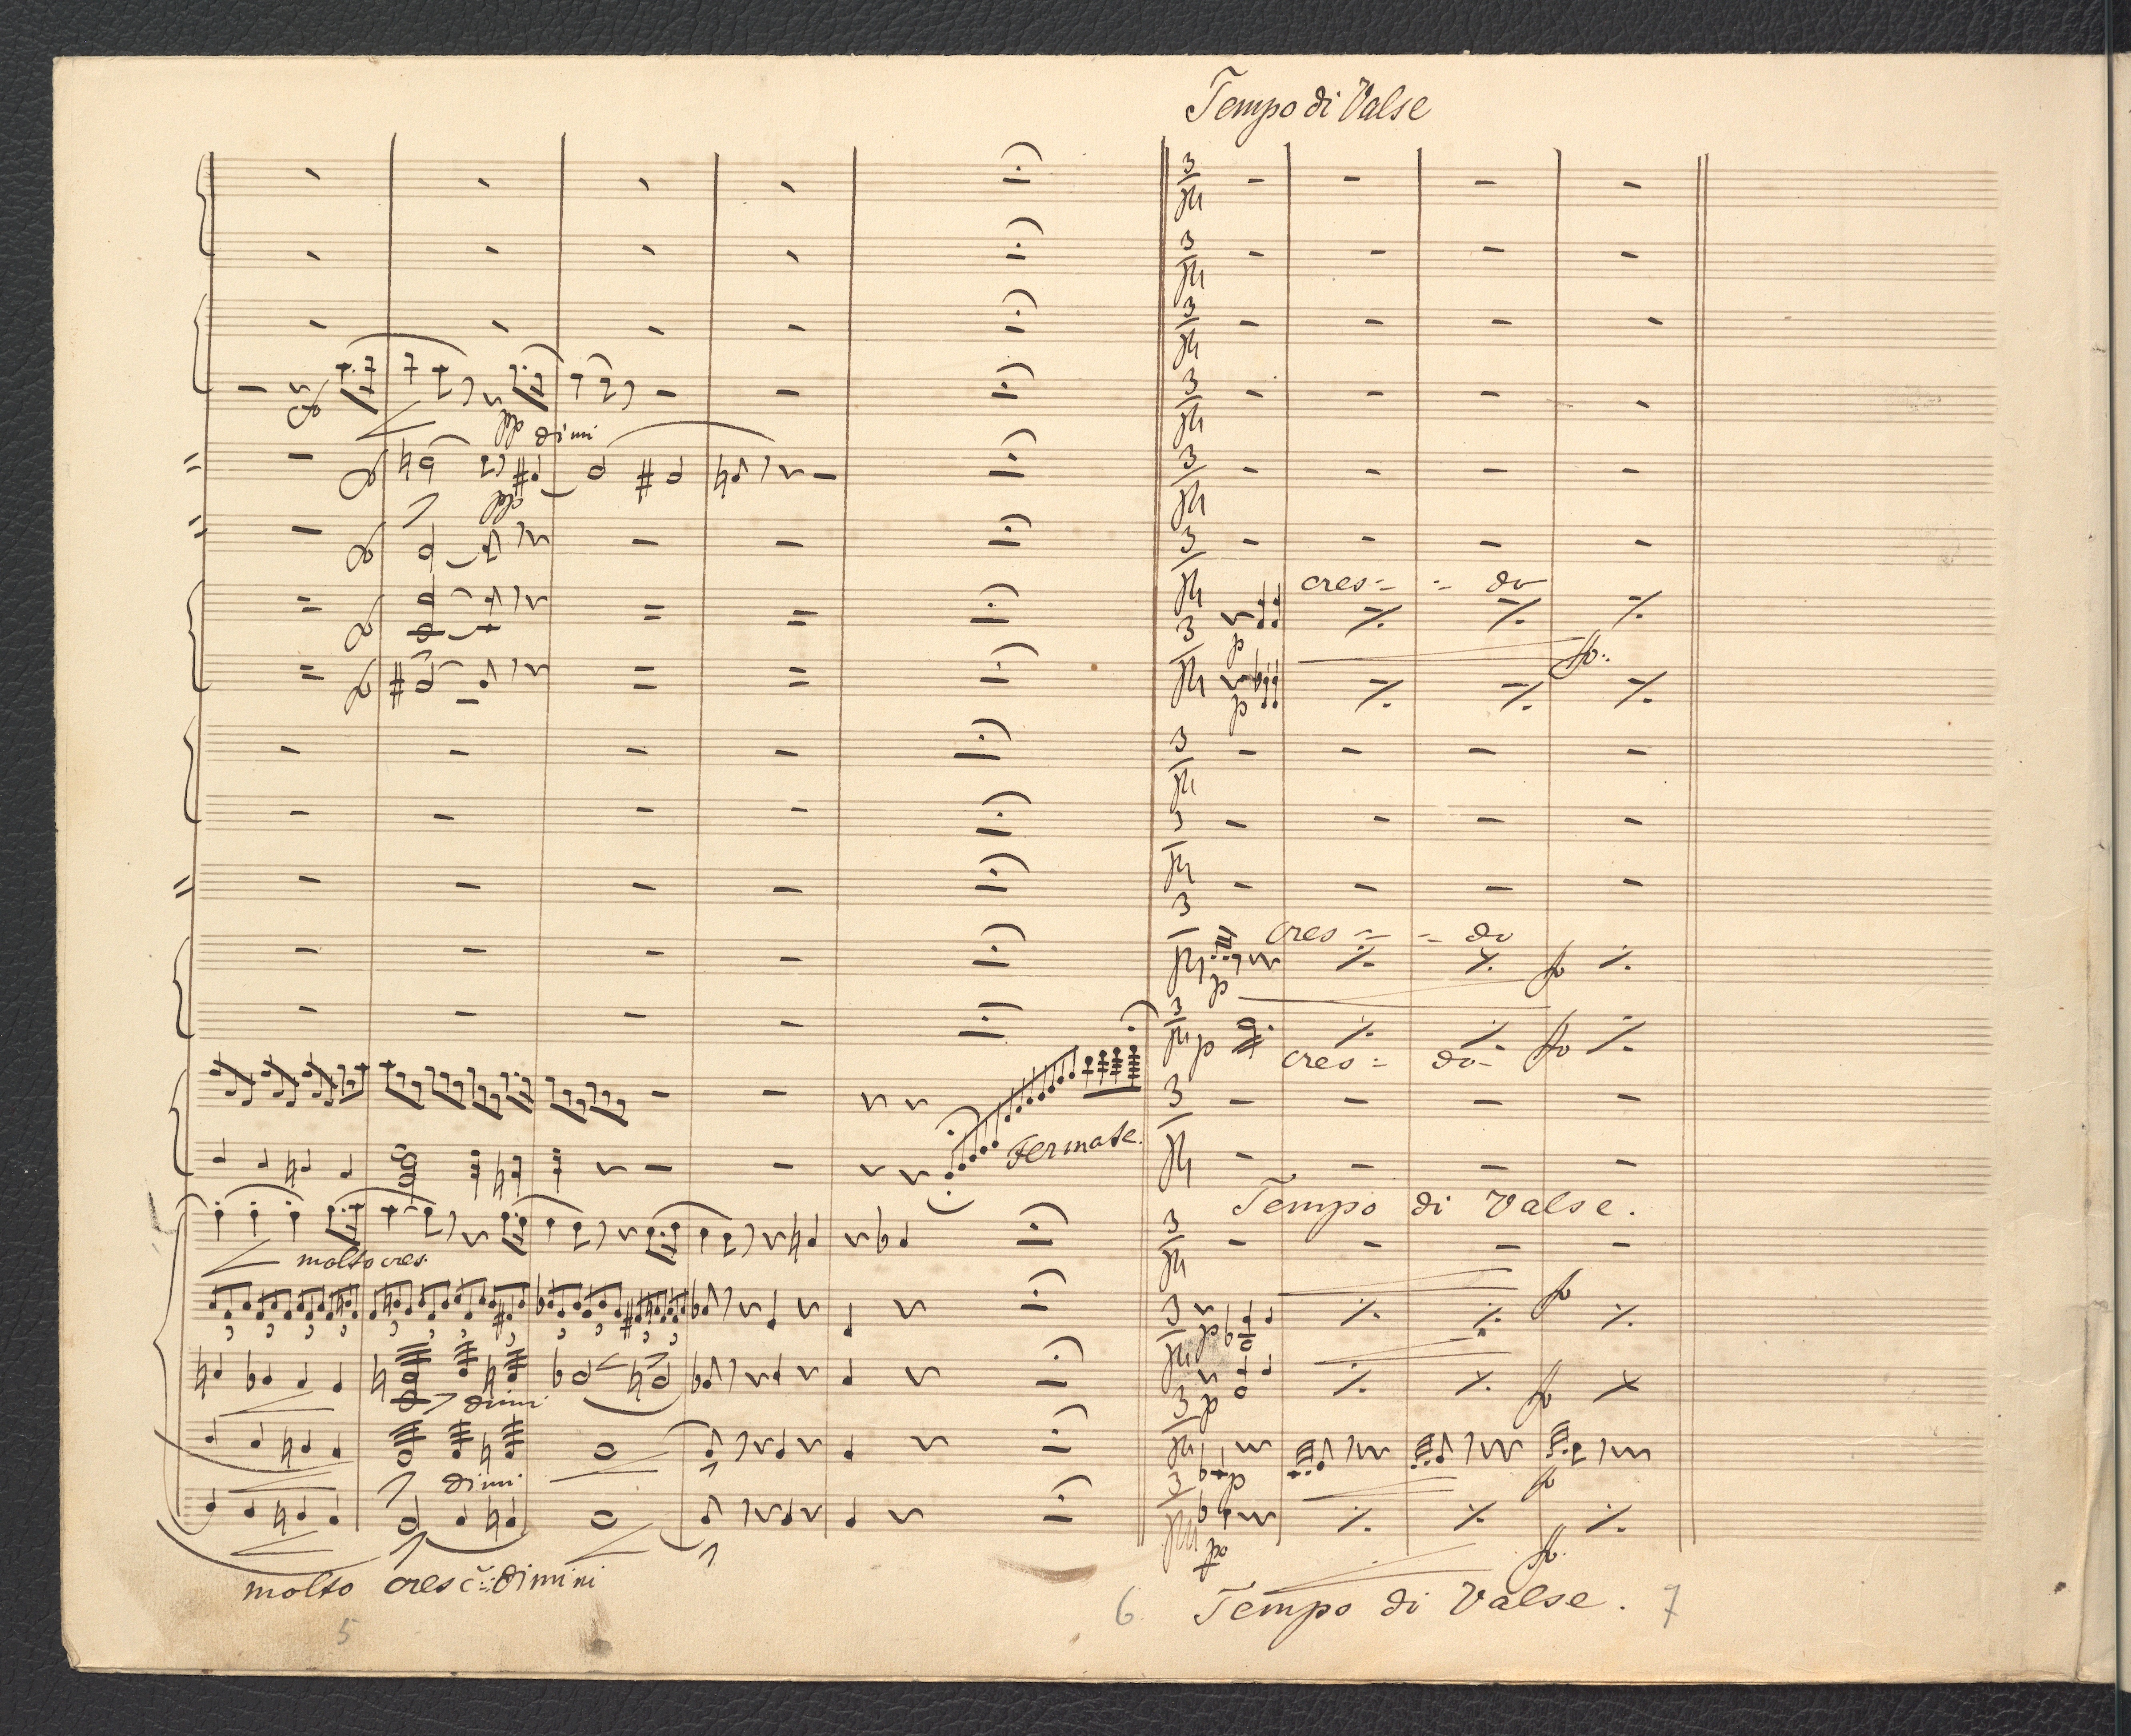 Tempo di Valse
dimi
cres= = do
cres = = do
cres = do-
Fermate.
Tempo di Valse.
molto cres.
dimi
dimi
molto cresc: dimini
Tempo di Valse.
5 6 7